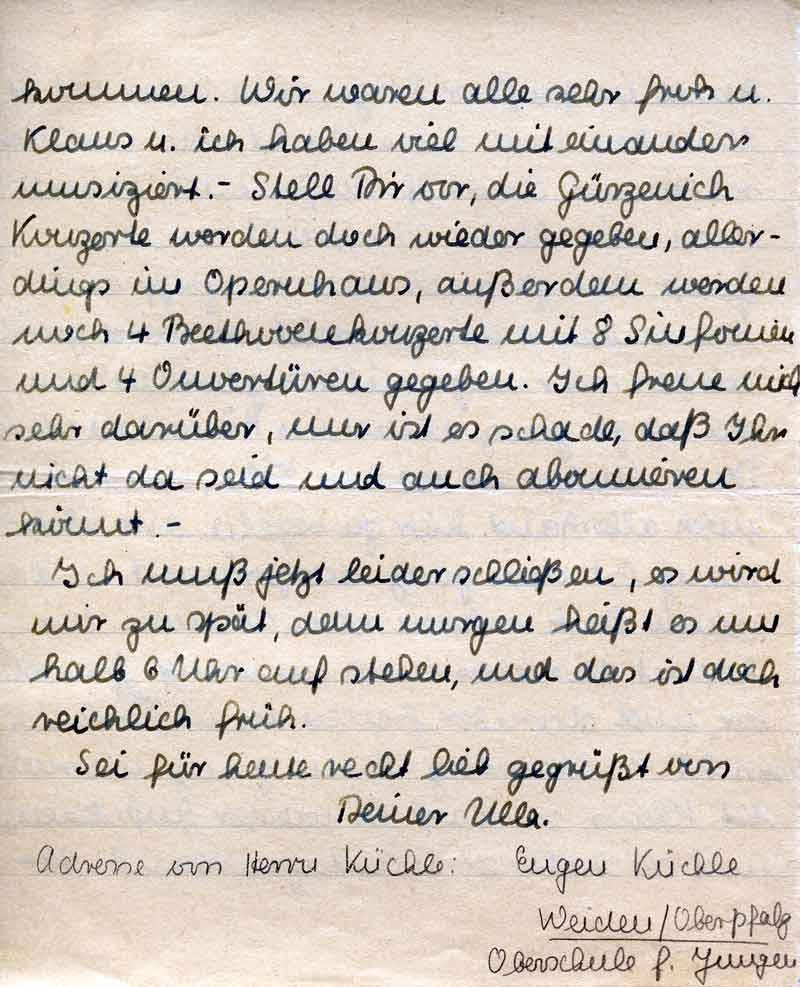 kommen. Wir waren alle sehr froh u.
Klaus u. ich haben viel miteinander
musiziert.- Stell Dir vor, die Gürzenich
Konzerte werden doch wieder gegeben, aller-
dings im Opernhaus, außerdem werden
noch 4 Beethovenkonzerte mit 8 Sinfonien
und 4 Ouvertüren gegeben. Ich freue mich
sehr darüber, nur ist es schade, daß Ihr
nicht da seid und auch abonnieren
könnt.-
Ich muß jetzt leider schließen, es wird
mir zu spät, denn morgen heißt es um
halb 6 Uhr auf stehen, und das ist doch
reichlich früh.
Sei für heute recht lieb gegrüßt von
Deiner Ulla.
Adresse von Herrn Küchle: Eugen Küchle
Weiden/Oberpfalz
Oberschule f. Jungen